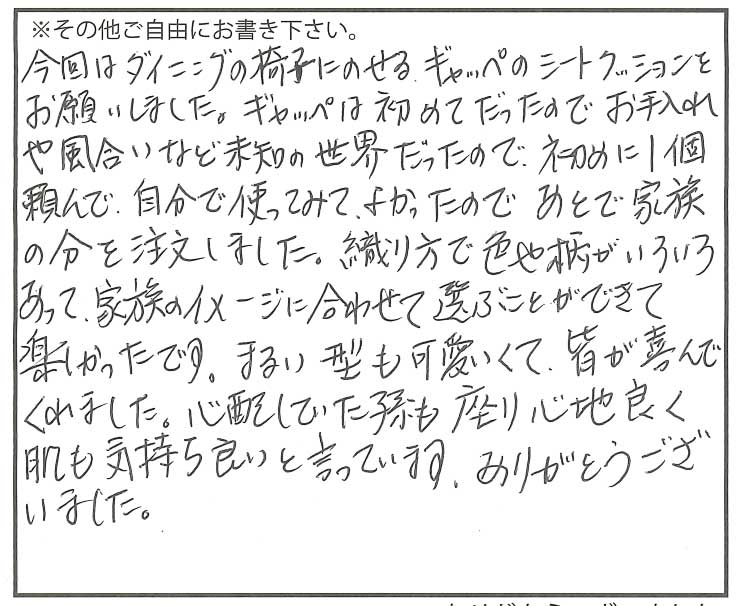 ※その他ご自由にお書き下さい。
今回はダイニングの椅子にのせる ギャッペのシートクッションを
お願いしました。ギャッペは初めてだったので お手入れ
や風合いなど未知の世界だったので、初めに1個
頼んで、自分で使ってみて、よかったので あとで家族
の分を注文しました。織り方で色や柄がいろいろ
あって、家族のイメージに合わせて選ぶことができて
楽しかったです。まるい型も可愛いくて、皆が喜んで
くれました。心配していた孫も座り心地良く
肌も気持ち良いと言っています。ありがとうござ
いました。